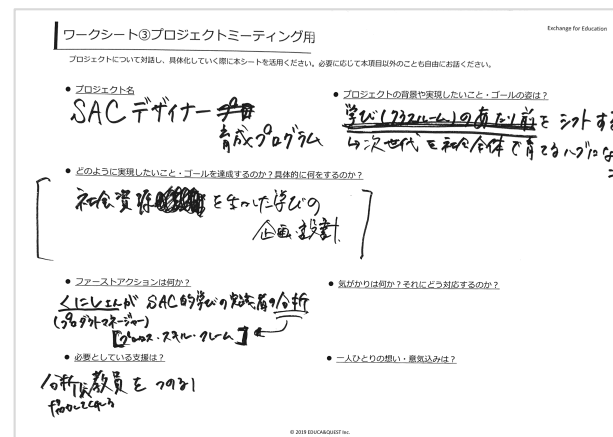 Exchange for Education
ワークシート③プロジェクトミーティング用
プロジェクトについて対話し、具体化していく際に本シートを活用ください。必要に応じて本項目以外のことも自由にお話ください。
● プロジェクト名
SAC デザイナー
育成プログラム
● プロジェクトの背景や実現したいこと・ゴールの姿は？
学び(クラスルーム)のあたり前をシフトする
↳次世代を社会全体で育てるハブにな
● どのように実現したいこと・ゴールを達成するのか？具体的に何をするのか？
社会資源を生かした学びの
企画・設計
● ファーストアクションは何か？
くにしぇんが SAC的学びの実践者の分析
(プロダクトマネージャー)
[プロセス・スキル・フレーム]
● 気がかりは何か？それにどう対応するのか？
● 必要としている支援は？
分析 教員をつのる！
● 一人ひとりの想い・意気込みは？
© 2019 EDUCA&QUEST Inc.